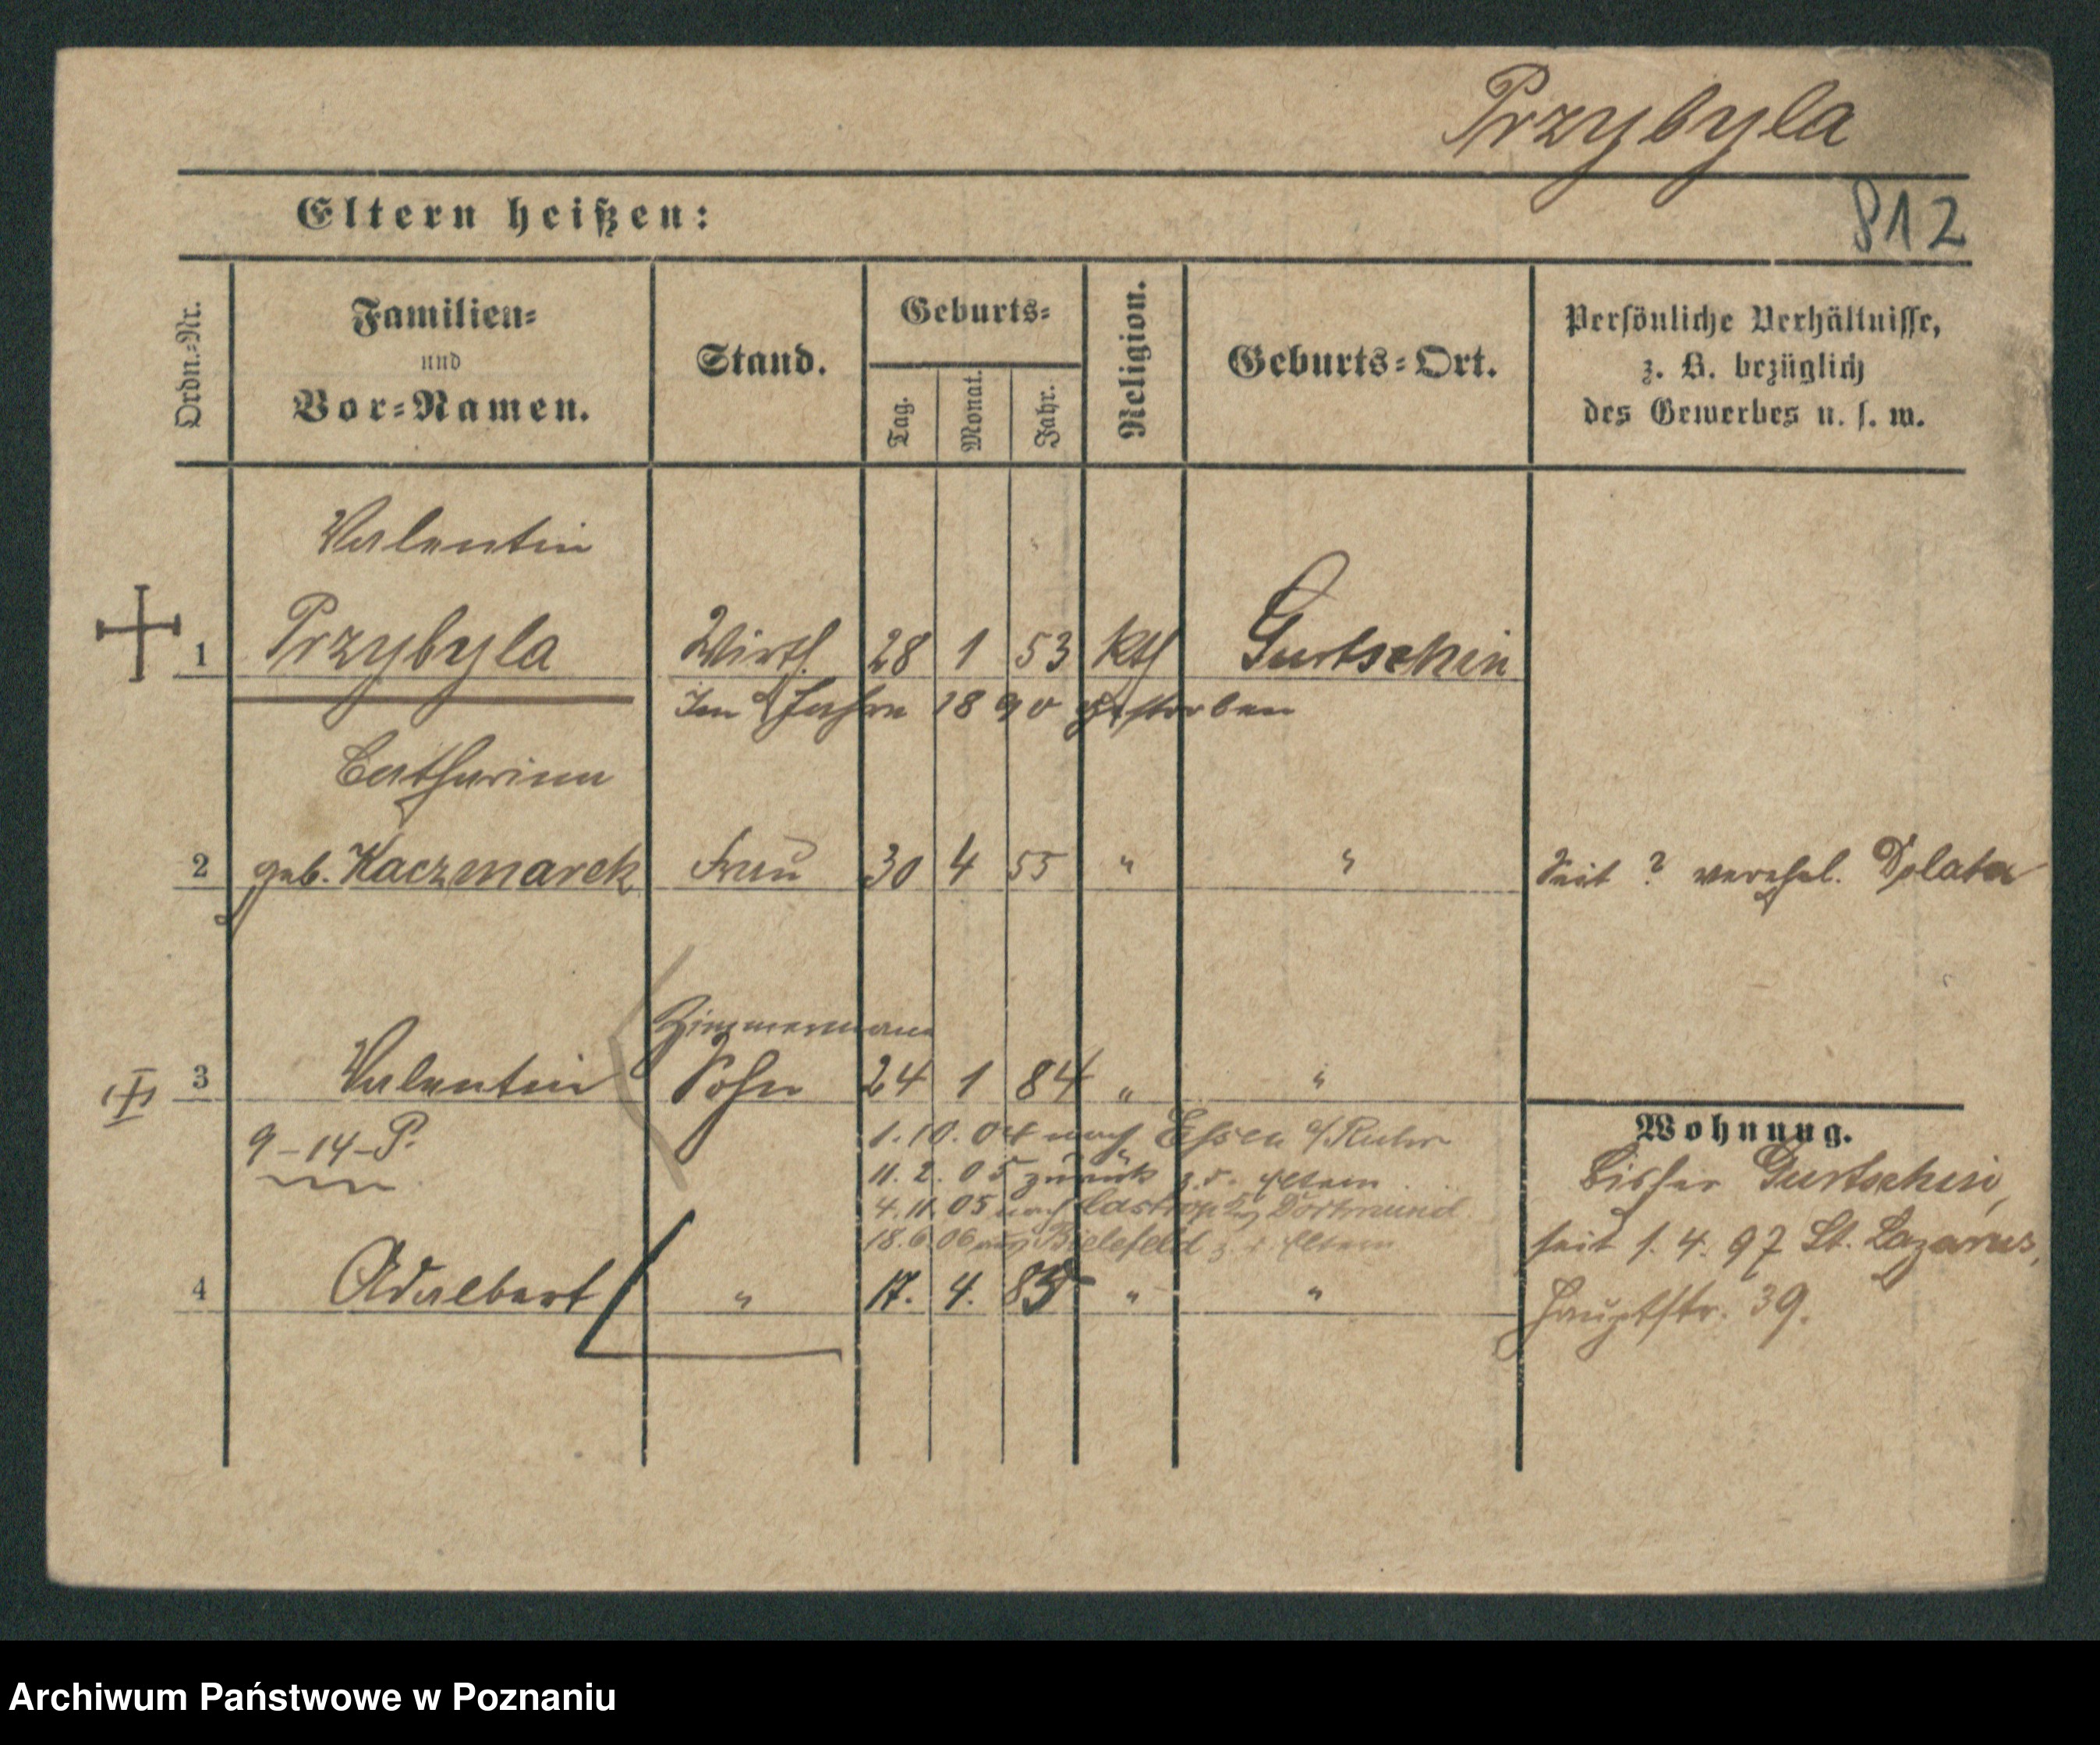 Przybyla
812
Eltern heißen:
Ordn.-Nr.
Familien-
und
Vor-Namen.
Stand.
Geburts-
Tag.
Monat.
Jahr.
Religion.
Geburts-Ort.
Persönliche Verhältnisse,
z. B. bezüglich
des Gewerbes u. s. w.
Valentin
1 Przybyla Wirth 28 1 53 kth Gurtschin
Im Jahre 1890 gestorben
Catharina
2 geb. Kaczmarek Frau 30 4 55 " " Seit ? verehel. Dolata
Zimmermann
3 Valentin Sohn 24 1 84 " "
9-14-P.
1.10.04 nach Essen a/Ruhr
11.2.05 zurück z. d. Eltern
4.11.05 nach Castrop Dortmund
18.6.06 aus Bielefeld z. d. Eltern
4 Adalbert " 17. 4. 85 " "
Wohnung.
Bisher Gurtschin,
seit 1. 4. 97 St. Lazarus,
Hauptstr. 39.
Archiwum Państwowe w Poznaniu